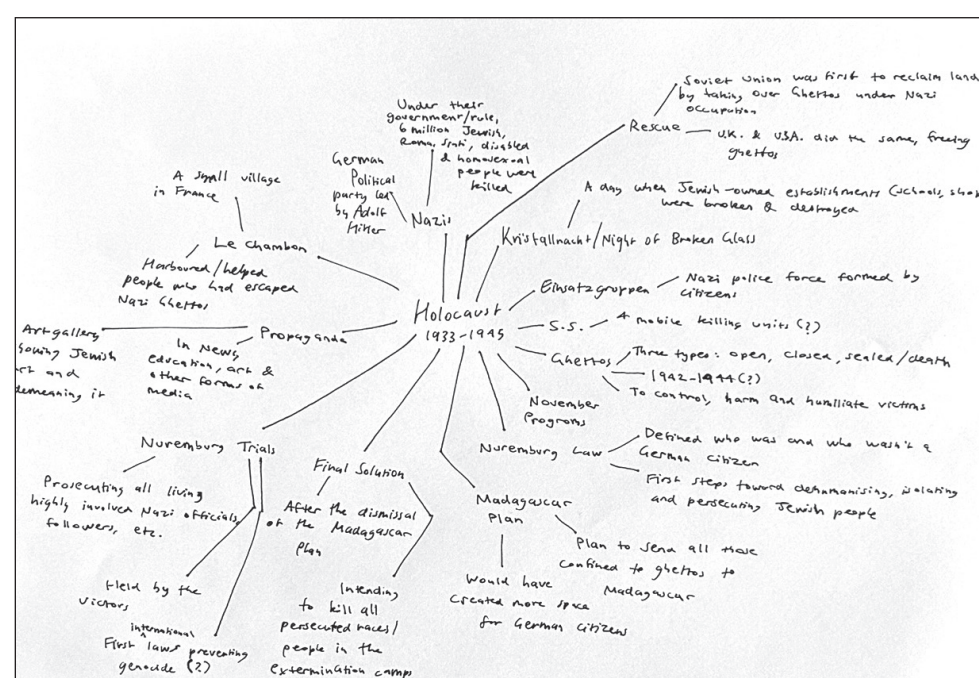 Holocaust
1933-1945
Nazis
German
Political
party led
by Adolf
Hitler
Under their
government/rule,
6 million Jewish,
Roma, Sinti, disabled
& homosexual
people were
killed
Rescue
Soviet Union was first to reclaim land
by taking over Ghettos under Nazi
occupation
U.K. & U.S.A. did the same, freeing
ghettos
Kristallnacht/Night of Broken Glass
A day when Jewish-owned establishments (schools, shop
were broken & destroyed
Einsatzgruppen
Nazi police force formed by
citizens
S.S.
A mobile killing units (?)
Ghettos
Three types: open, closed, sealed/death
1942-1944(?)
To control, harm and humiliate victims
November
Programs
Nuremburg Law
Defined who was and who wasn't a
German citizen
First steps toward dehumanising, isolating
and persecuting Jewish people
Madagascar
Plan
Plan to send all those
confined to ghettos to
Madagascar
Would have
created more space
for German citizens
Final Solution
After the dismissal
of the Madagascar
Plan
Intending
to kill all
persecuted races/
people in the
extermination camps
Nuremburg Trials
Prosecuting all living
highly involved Nazi officials,
followers, etc.
Held by the
victors
international
First laws preventing
genocide (?)
Propaganda
In News,
education, art &
other forms of
media
Art gallery
howing Jewish
rt and
demeaning it
Le Chambon
A small village
in France
Harboured/helped
people who had escaped
Nazi Ghettos